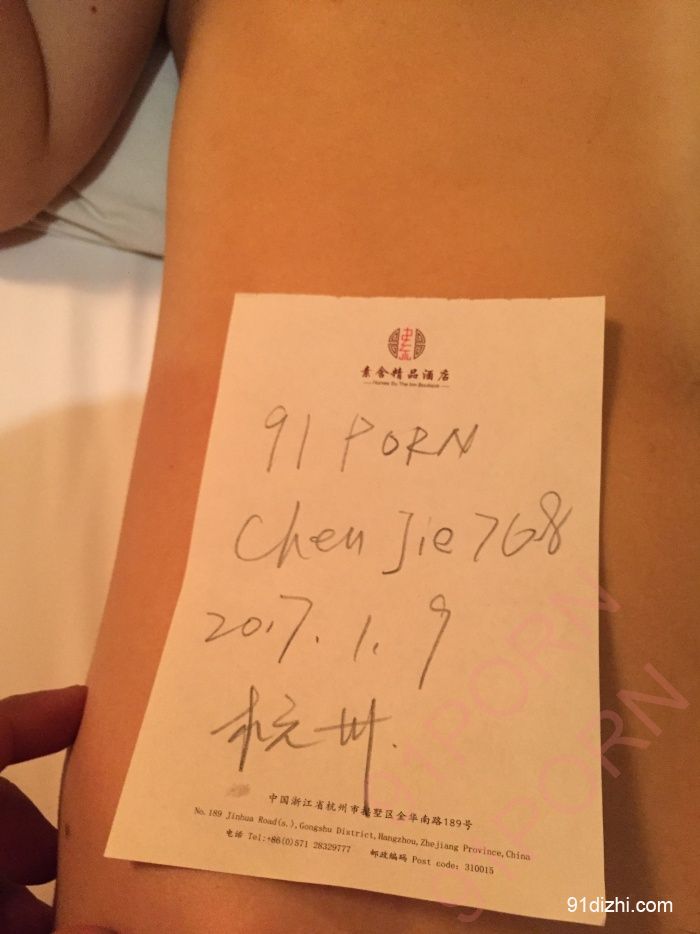 素舍精品酒店
91 PORN
Chen Jie 768
2017.1.9
杭州.
中国浙江省杭州市拱墅区金华南路189号
No.189 Jinhua Road(s.),Gongshu District,Hangzhou,Zhejiang Province,China
电话 Tel:+86(0)571 28329777 邮政编码 Post code: 310015
91PORN
91PORN
91dizhi.com